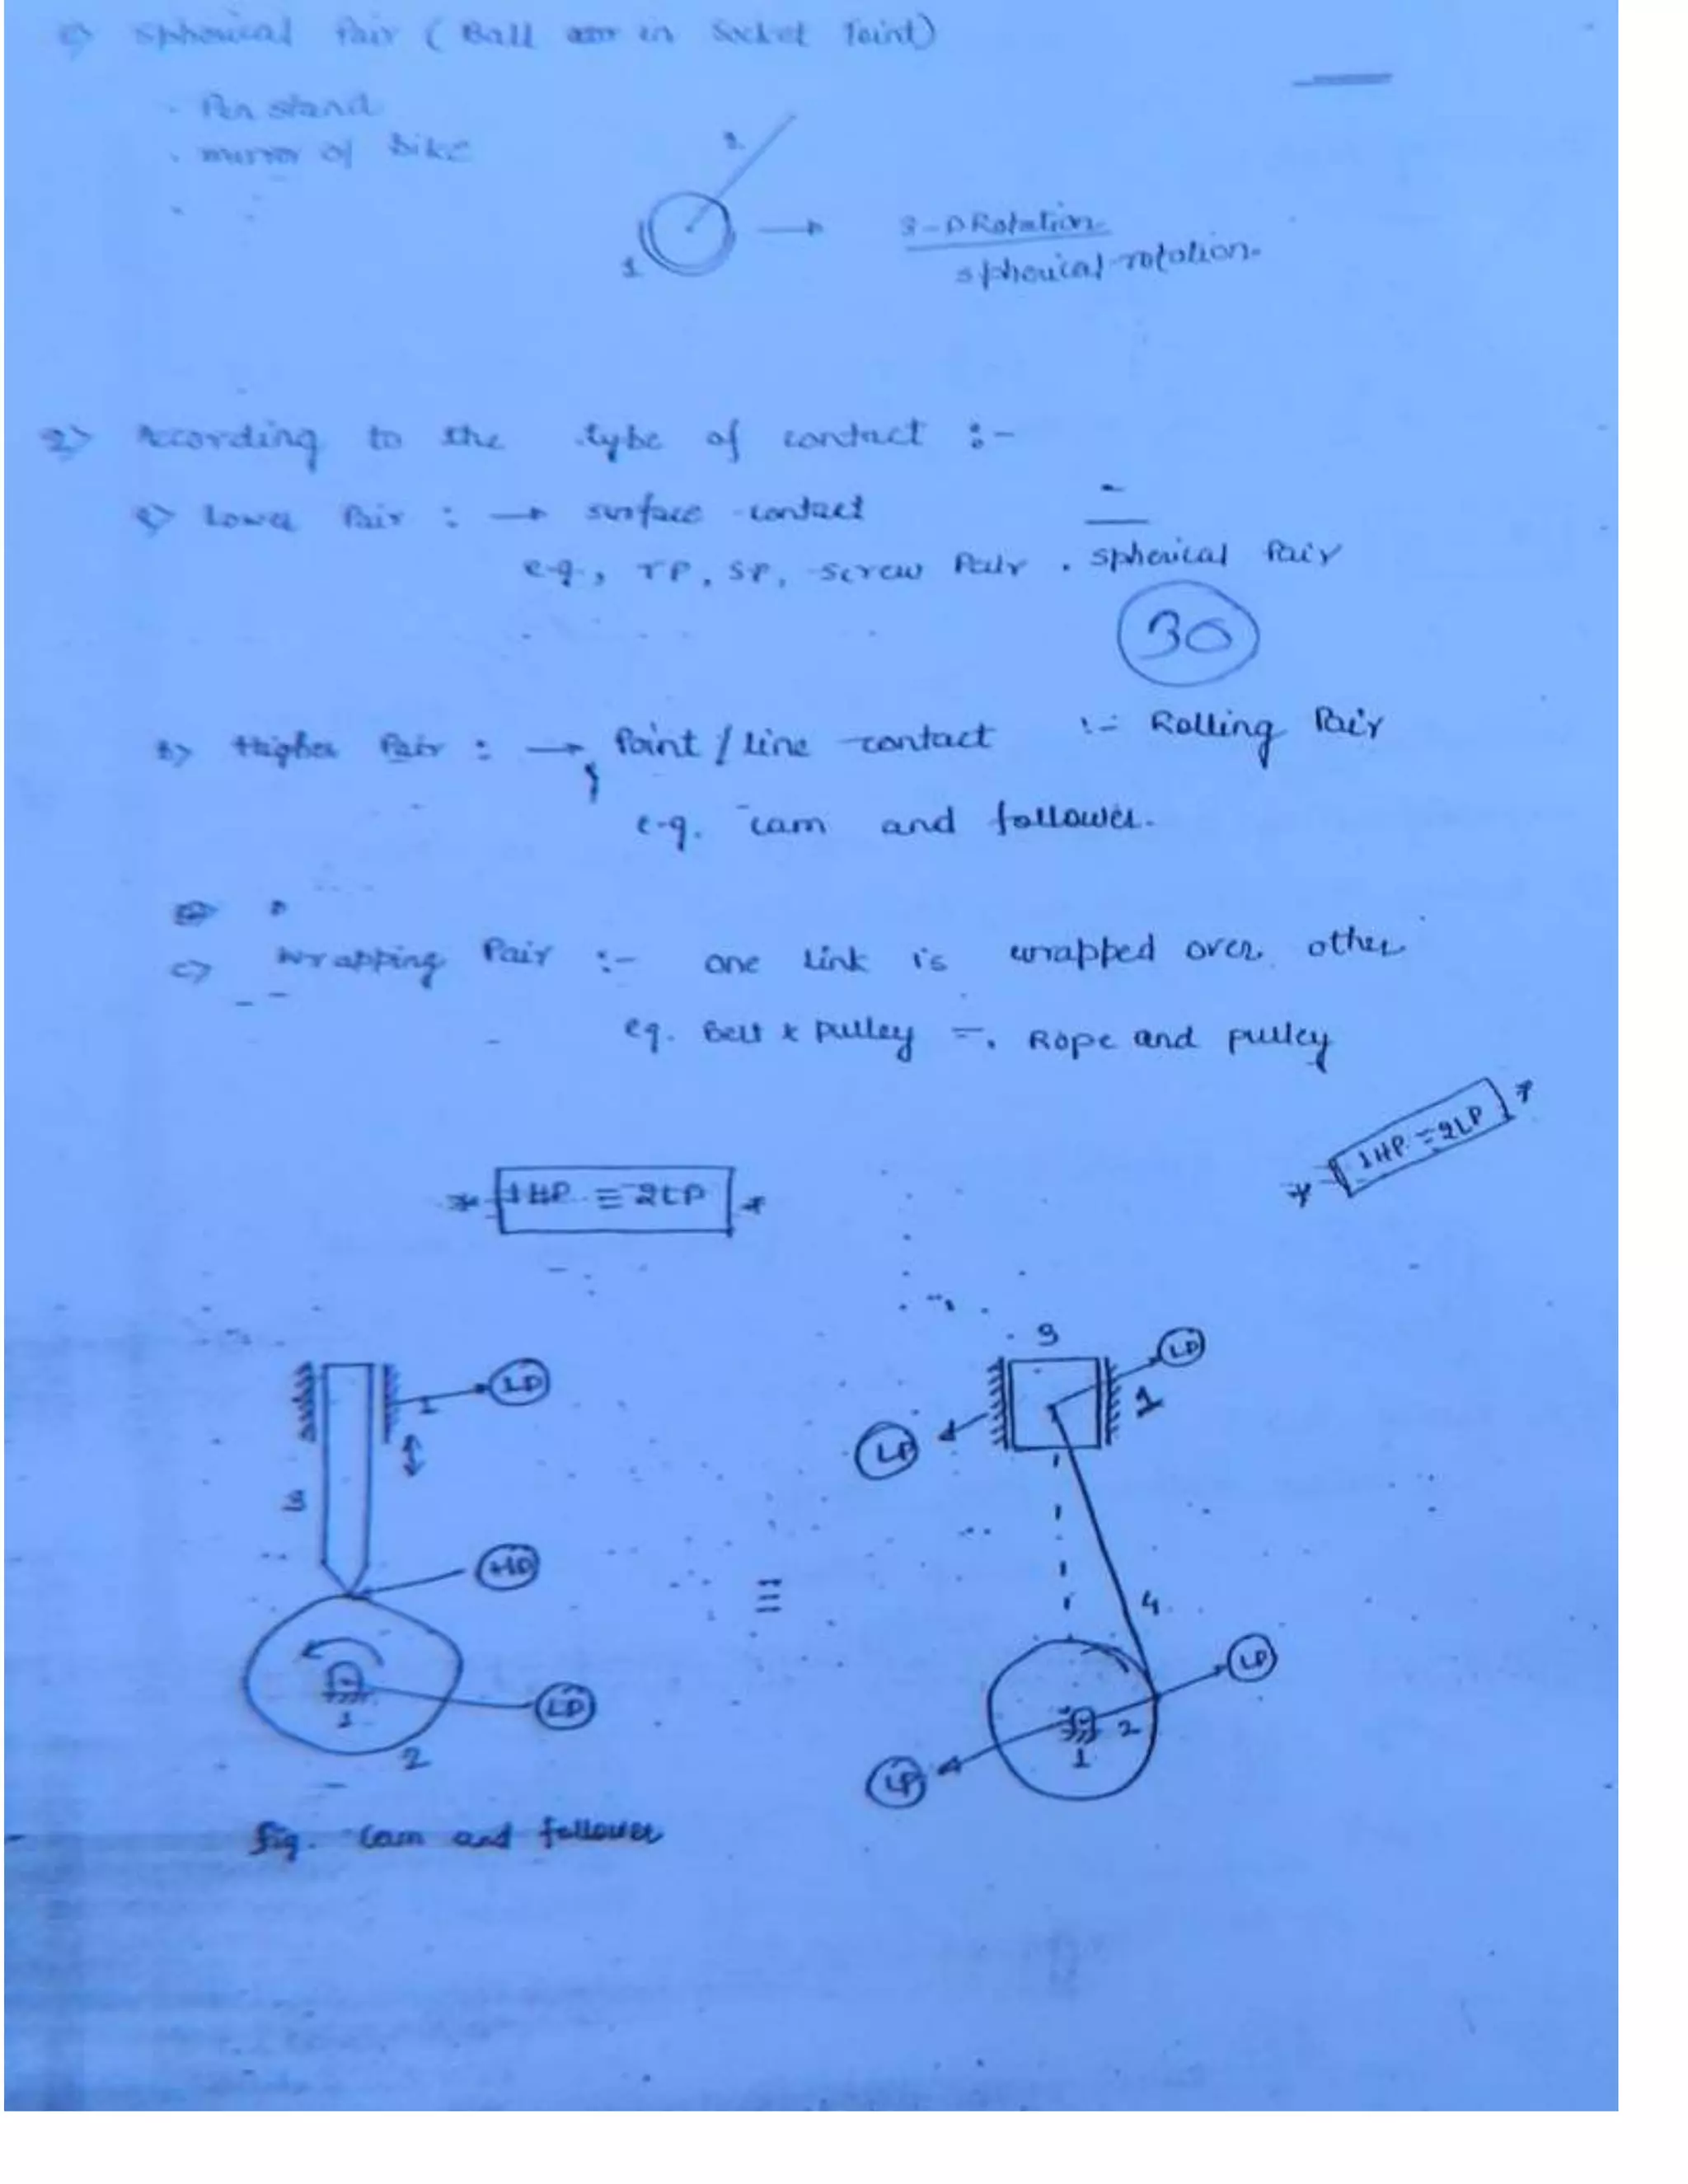 e> Spherical Pair ( Ball in Socket Joint)
· Pen stand
· mirror of Bike
2
1
3-D Rotation
spherical rotation.
2> According to the type of contact :-
a> Lower Pair : → surface contact
e.g., TP, SP, Screw Pair, spherical Pair
30
b> Higher Pair : → Point / Line contact :- Rolling Pair
e.g. cam and follower.
c> Wrapping Pair :- one link is wrapped over other
eg. Belt & pulley, Rope and pulley
* 1HP ≡ 2LP *
* 1HP = 2LP *
LP
1
3
HP
LP
1
2
≡
3
LP
1
LP
4
LP
2
1
LP
fig. Cam and follower